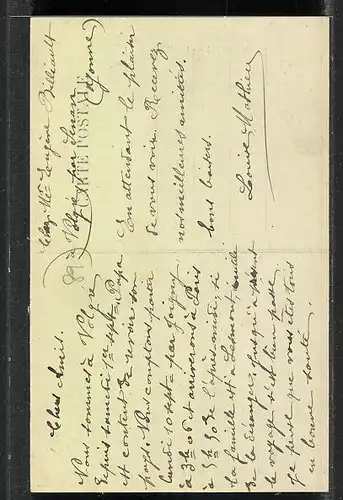 Chez Mr Eugène Billiault
à Volgré par Senan
89 (Yonne)
CARTE POSTALE
Chers Amis.
Nous sommes à Volgré
depuis samedi 1er sept. Papa
est content de revoir son
pays. Nous comptons partir
lundi 10 sept. par Joigny
à 3h 06 et arriverons à Paris
à 5h 30 de l'après midi, si
la famille est à Lesmont, inutile
de la déranger, jusqu'à présent
le voyage s'est bien passé
je pense que vous êtes tous
en bonne santé.
En attendant le plaisir
de vous voir. Recevez
nos meilleures amitiés.
bons baisers.
Louise Mathieu